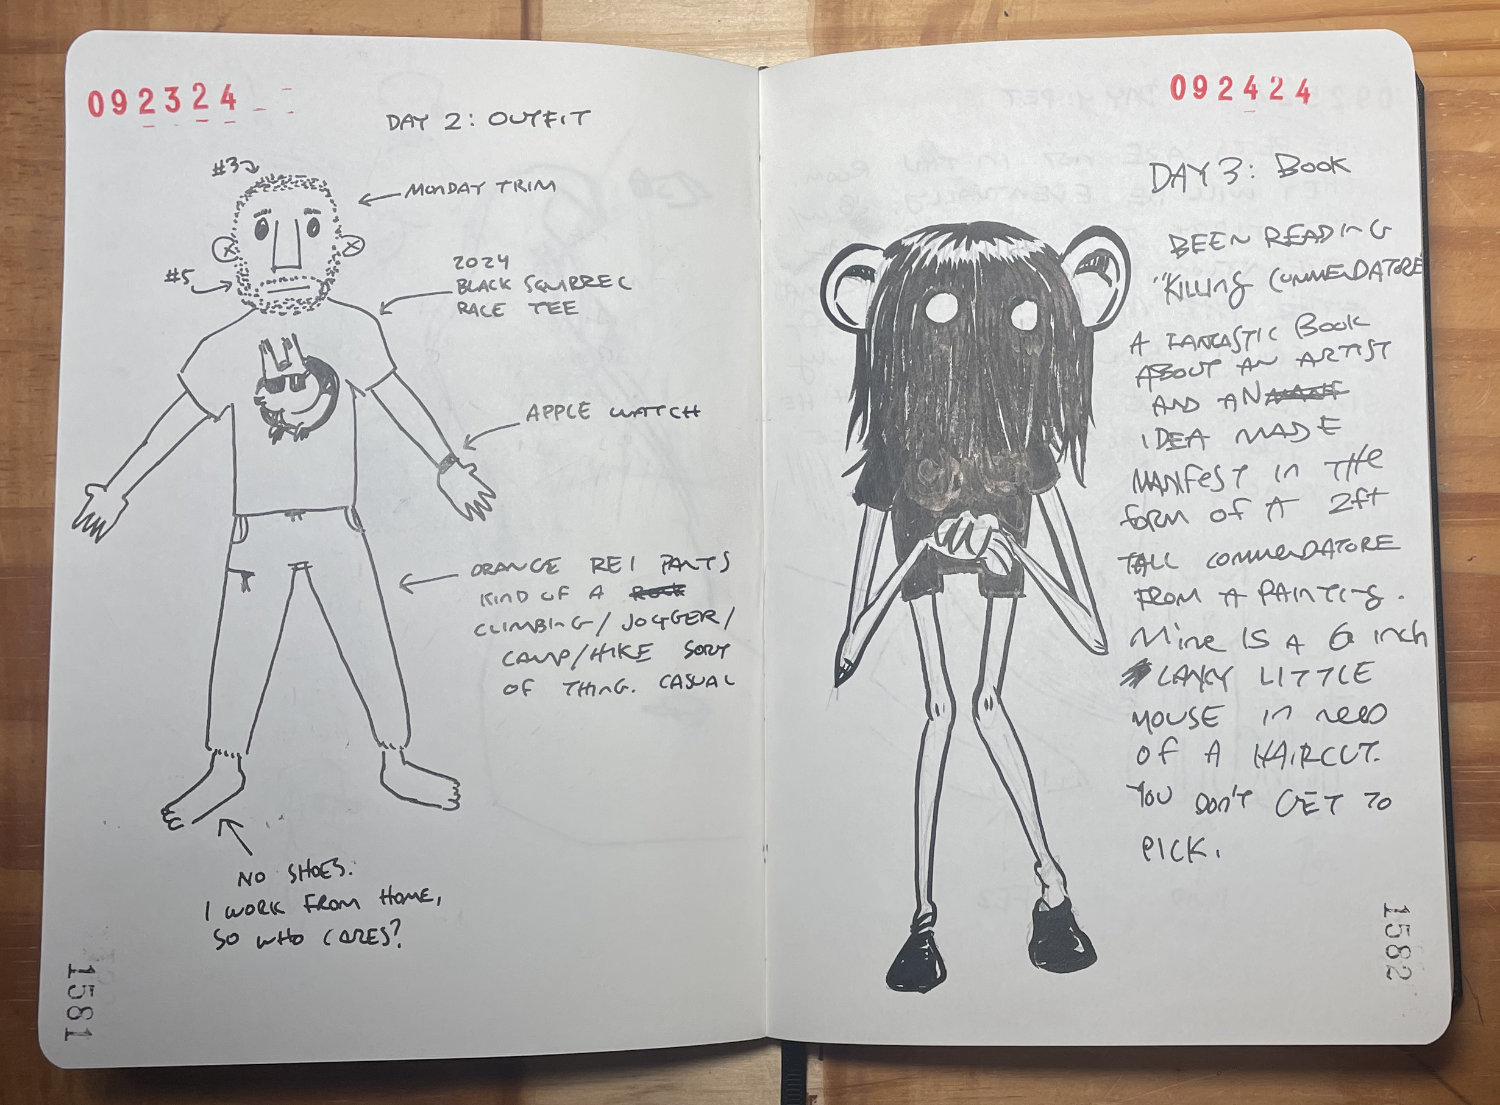 092324
DAY 2: OUTFIT
#3
MONDAY TRIM
#5
2024
BLACK SQUIRREL
RACE TEE
APPLE WATCH
ORANGE REI PANTS
KIND OF A ROCK
CLIMBING/JOGGER/
CAMP/HIKE SORT
OF THING. CASUAL
NO SHOES.
I WORK FROM HOME,
SO WHO CARES?
1581
092424
DAY 3: BOOK
BEEN READING
"KILLING COMMENDATORE
A FANTASTIC BOOK
ABOUT AN ARTIST
AND AN
IDEA MADE
MANIFEST IN THE
FORM OF A 2ft
TALL COMMENDATORE
FROM A PAINTING.
MINE IS A 6 INCH
LANKY LITTLE
MOUSE IN NEED
OF A HAIRCUT.
YOU DON'T GET TO
PICK.
1582